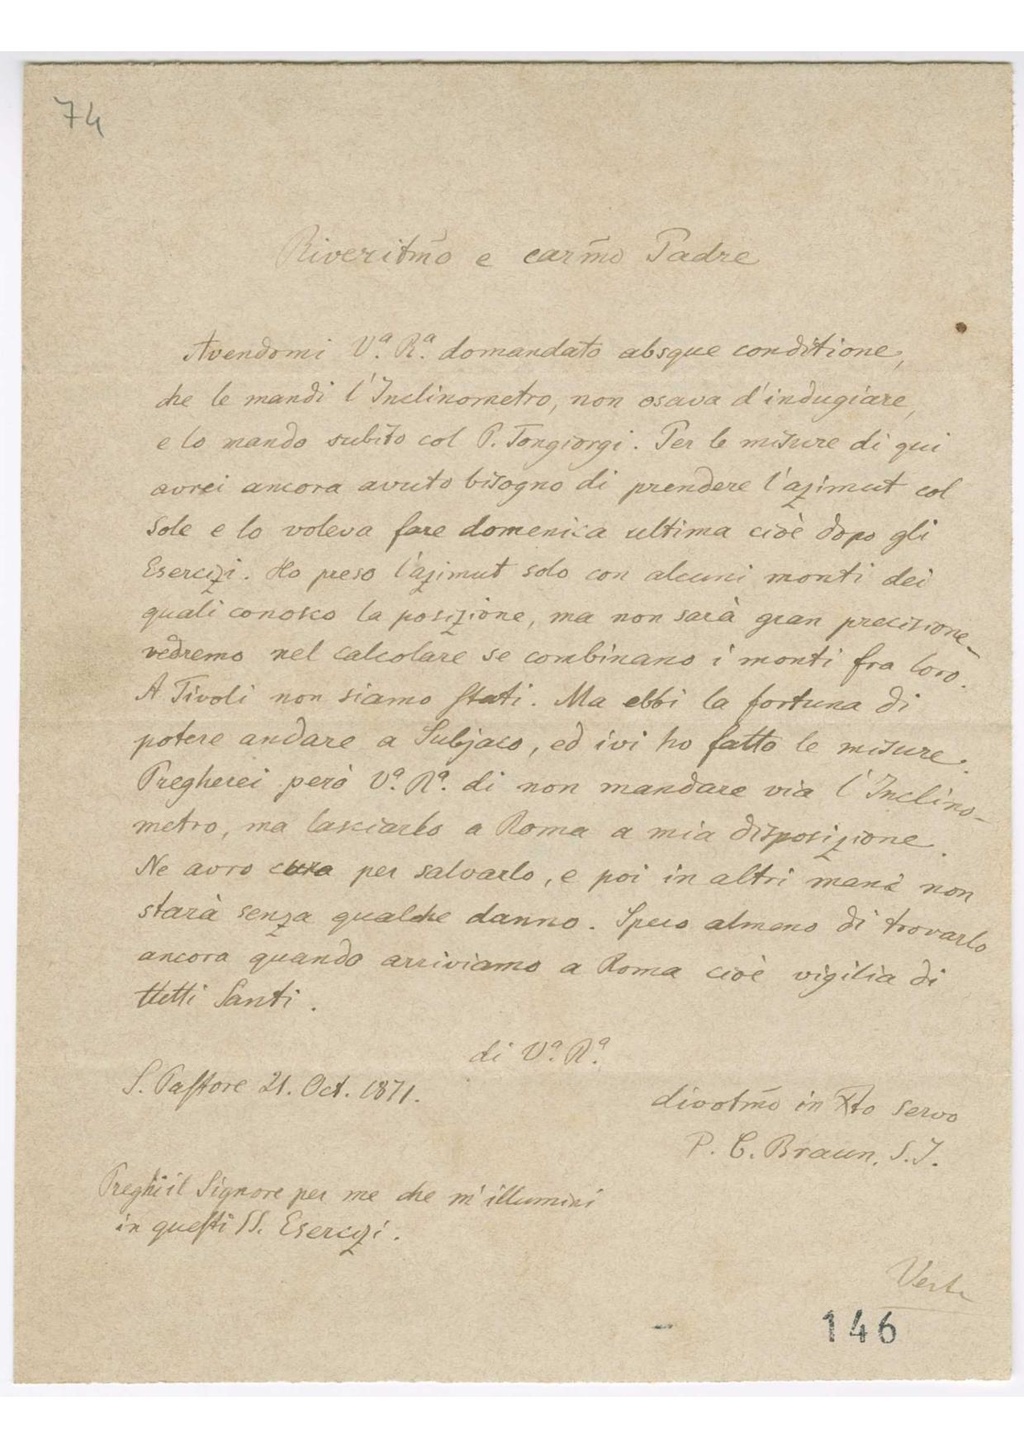 74
Riveritm̃o e carm̃o Padre
Avendomi Vª. Rª. domandato absque conditione,
che le mandi l'Inclinometro, non osava d'indugiare,
e lo mando subito col P. Tongiorgi. Per le misure di qui
avrei ancora avuto bisogno di prendere l'azimut col
Sole e lo voleva fare domenica ultima cioè dopo gli
Esercizi. Ho preso l'azimut solo con alcuni monti dei
quali conosco la posizione, ma non sarà gran precisione
vedremo nel calcolare se combinano i monti fra loro.
A Tivoli non siamo stati. Ma ebbi la fortuna di
potere andare a Subjaco, ed ivi ho fatto le misure.
Pregherei però Vª. Rª. di non mandare via l'Inclino-
metro, ma lasciarlo a Roma a mia disposizione.
Ne avro cura per salvarlo, e poi in altri mani non
starà senza qualche danno. Spero almeno di trovarlo
ancora quando arriviamo a Roma cioè vigilia di
tutti Santi.
di Vª. Rª.
S. Pastore 21. Oct. 1871.
divotm̃o in Xto servo
P. C. Braun, S.J.
Preghi il Signore per me che m'illumini
in questi SS. Esercizi.
Verte
146